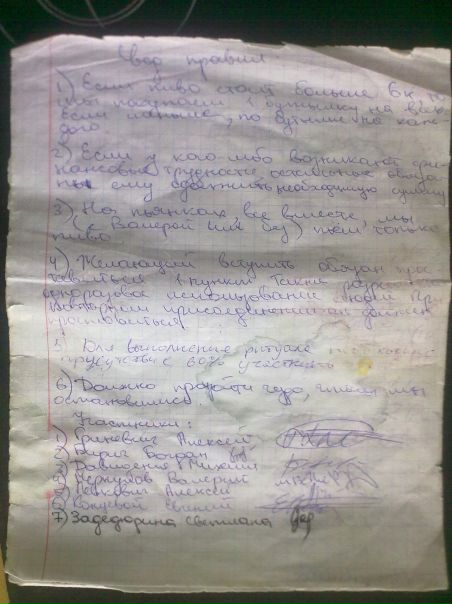 Свод правил.
1) Если пиво стоит больше 6 к, то
мы покупаем 1 бутылку на всех
Если меньше, по бутылке на каж-
дого
2) Если у кого-либо возникают фи-
нансовые трудности остальные обяза-
ны ему одолжить необходимую сумму
3) На пьянках, все вместе, мы
(с Валерой или без) пьём только
пиво
4) Желающий вступить обязан про-
ставиться
одноразовое использование
присоединении он должен
проставиться
5 Для выполнения ритуала
присутствие 60% участников
6) Должно пройти чудо, чтобы мы
остановились.
Участники:
1) Гринкевич Алексей
2) Богдан
3) Михаил
4) Меркулов Валерий
5) Алексей
6) Евгений
7) Задедюрина Светлана